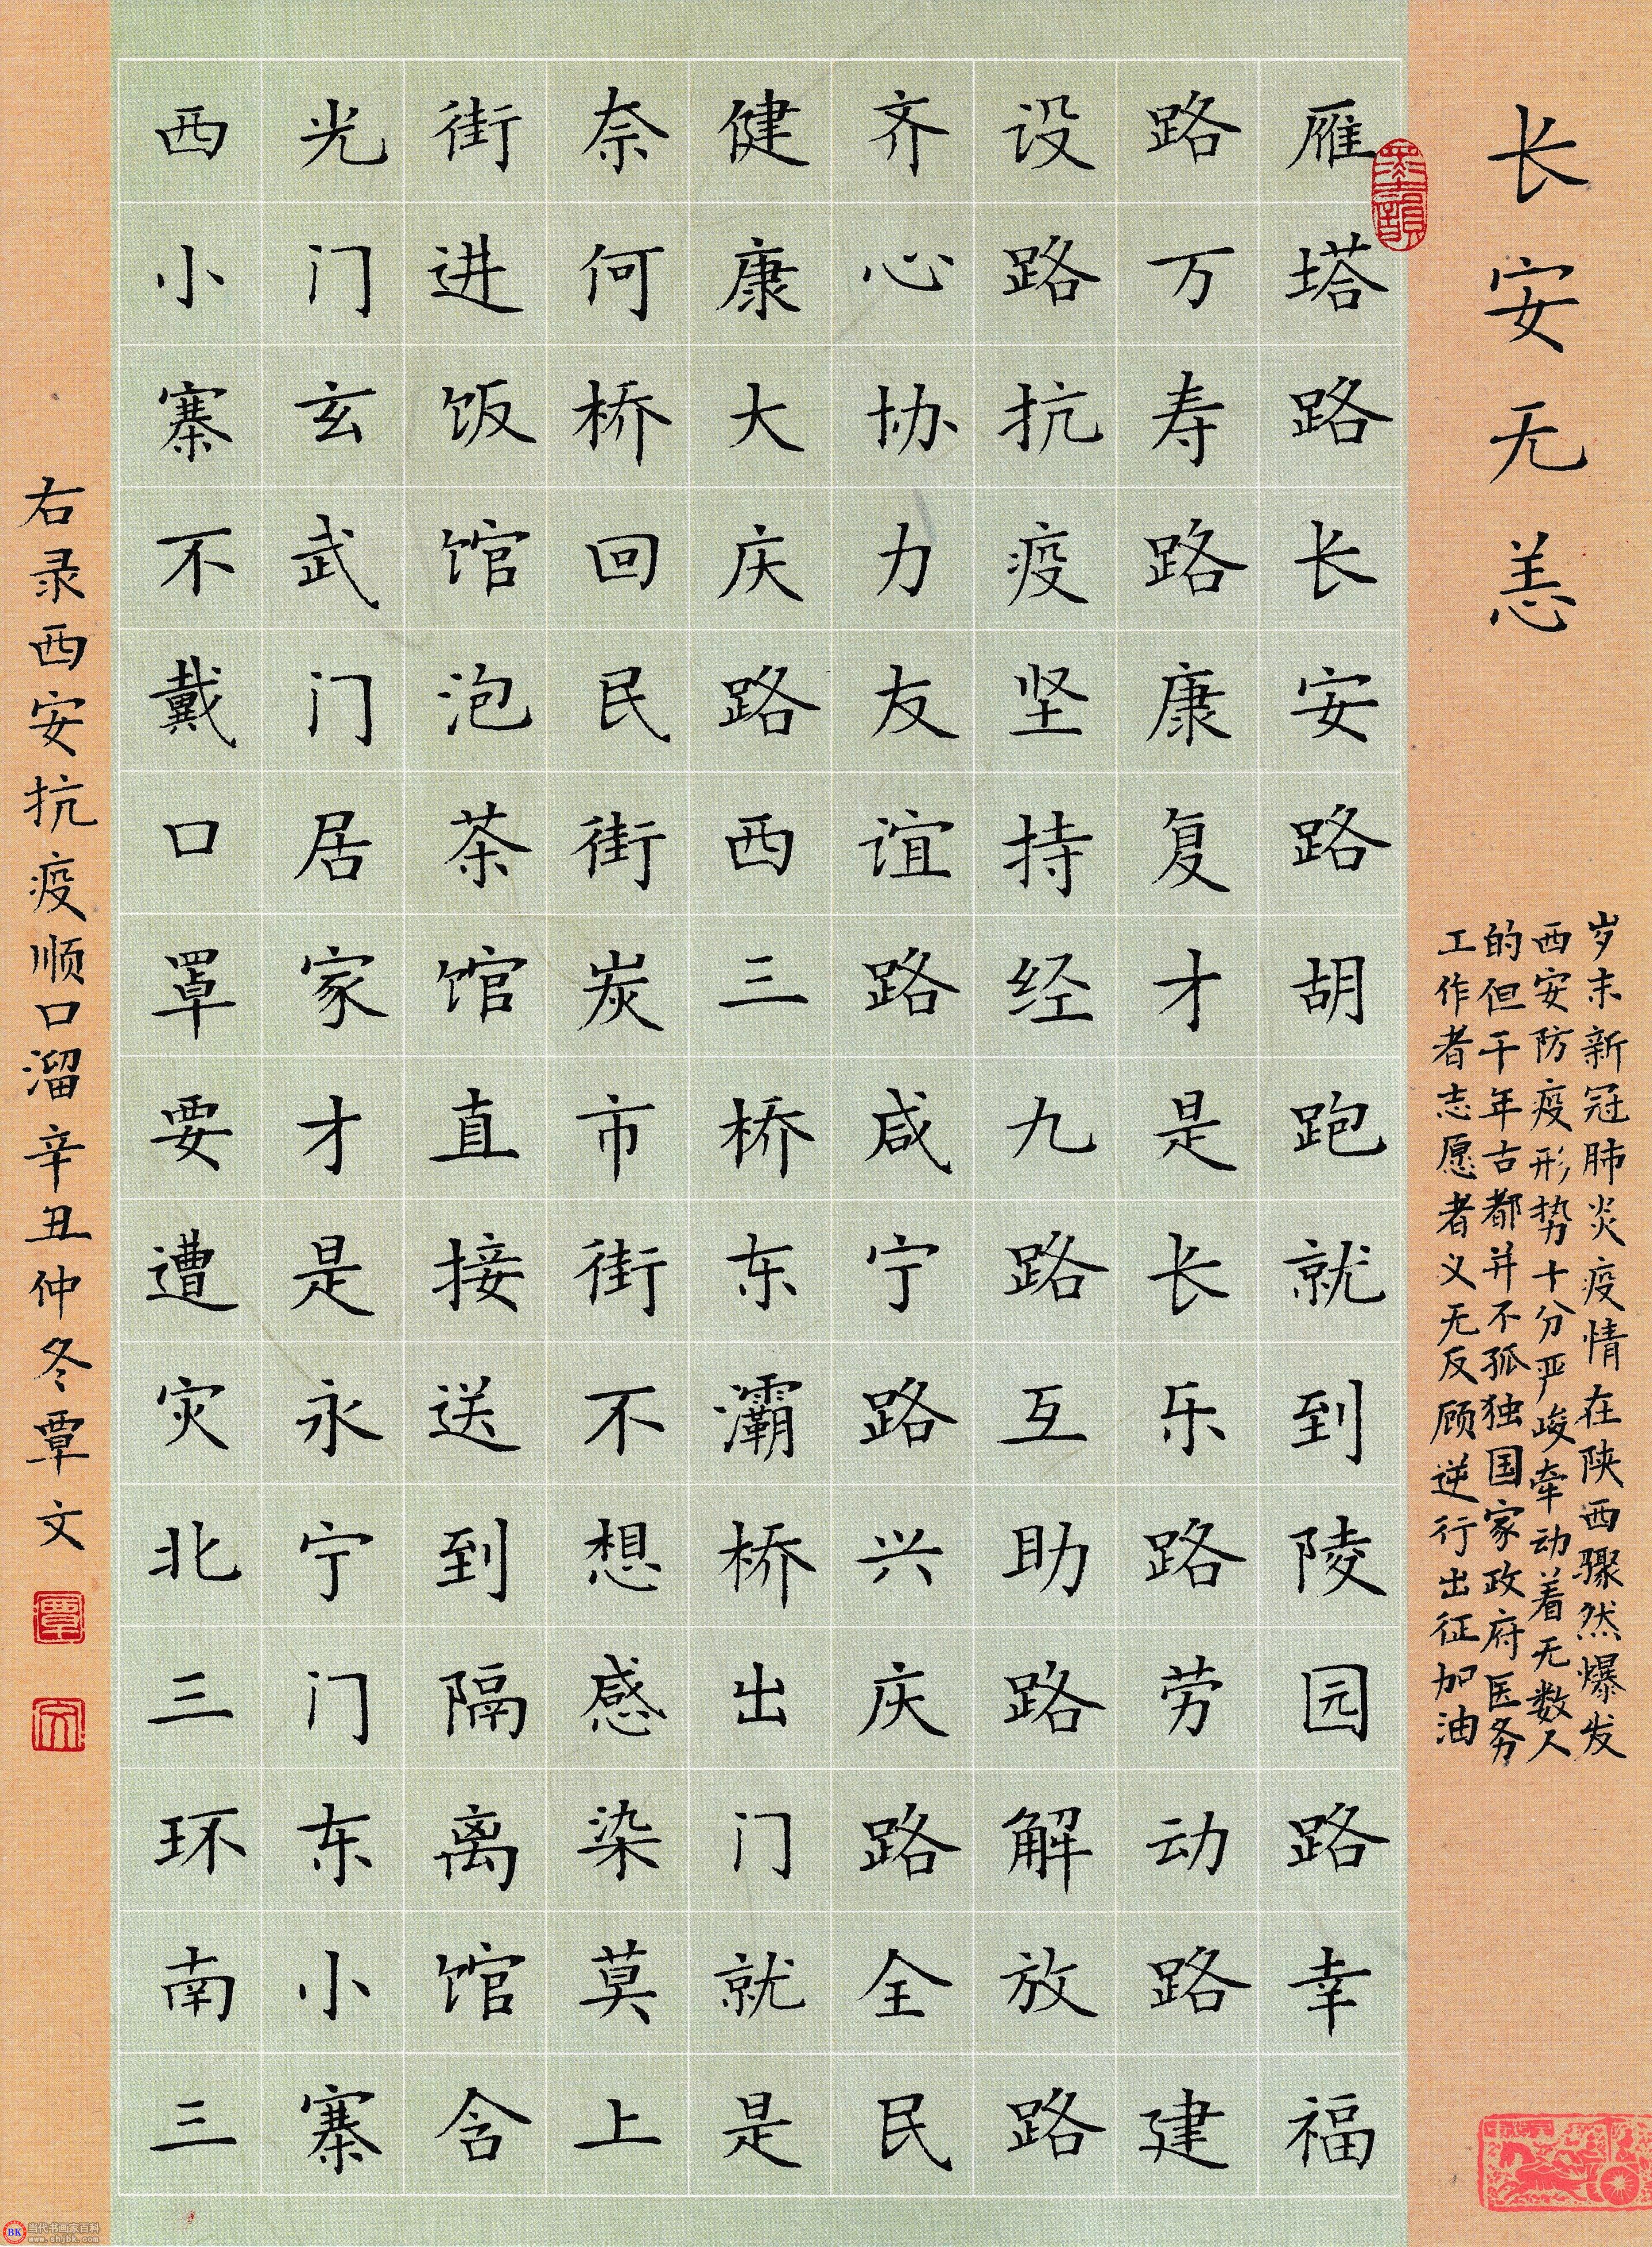 长安无恙
岁末新冠肺炎疫情在陕西骤然爆发
西安防疫形势十分严峻牵动着无数人
的但千年古都并不孤独国家政府医务
工作者志愿者义无反顾逆行出征加油
雁塔路长安路胡跑就到陵园路幸福
路万寿路康复才是长乐路劳动路建
设路抗疫坚持经九路互助路解放路
齐心协力友谊路咸宁路兴庆路全民
健康大庆路西三桥东灞桥出门就是
奈何桥回民街炭市街不想感染莫上
街进饭馆泡茶馆直接送到隔离馆含
光门玄武门居家才是永宁门东小寨
西小寨不戴口罩要遭灾北三环南三
右录西安抗疫顺口溜辛丑仲冬覃文
覃
文
BK 当代书画家百科
www.shjbk.com